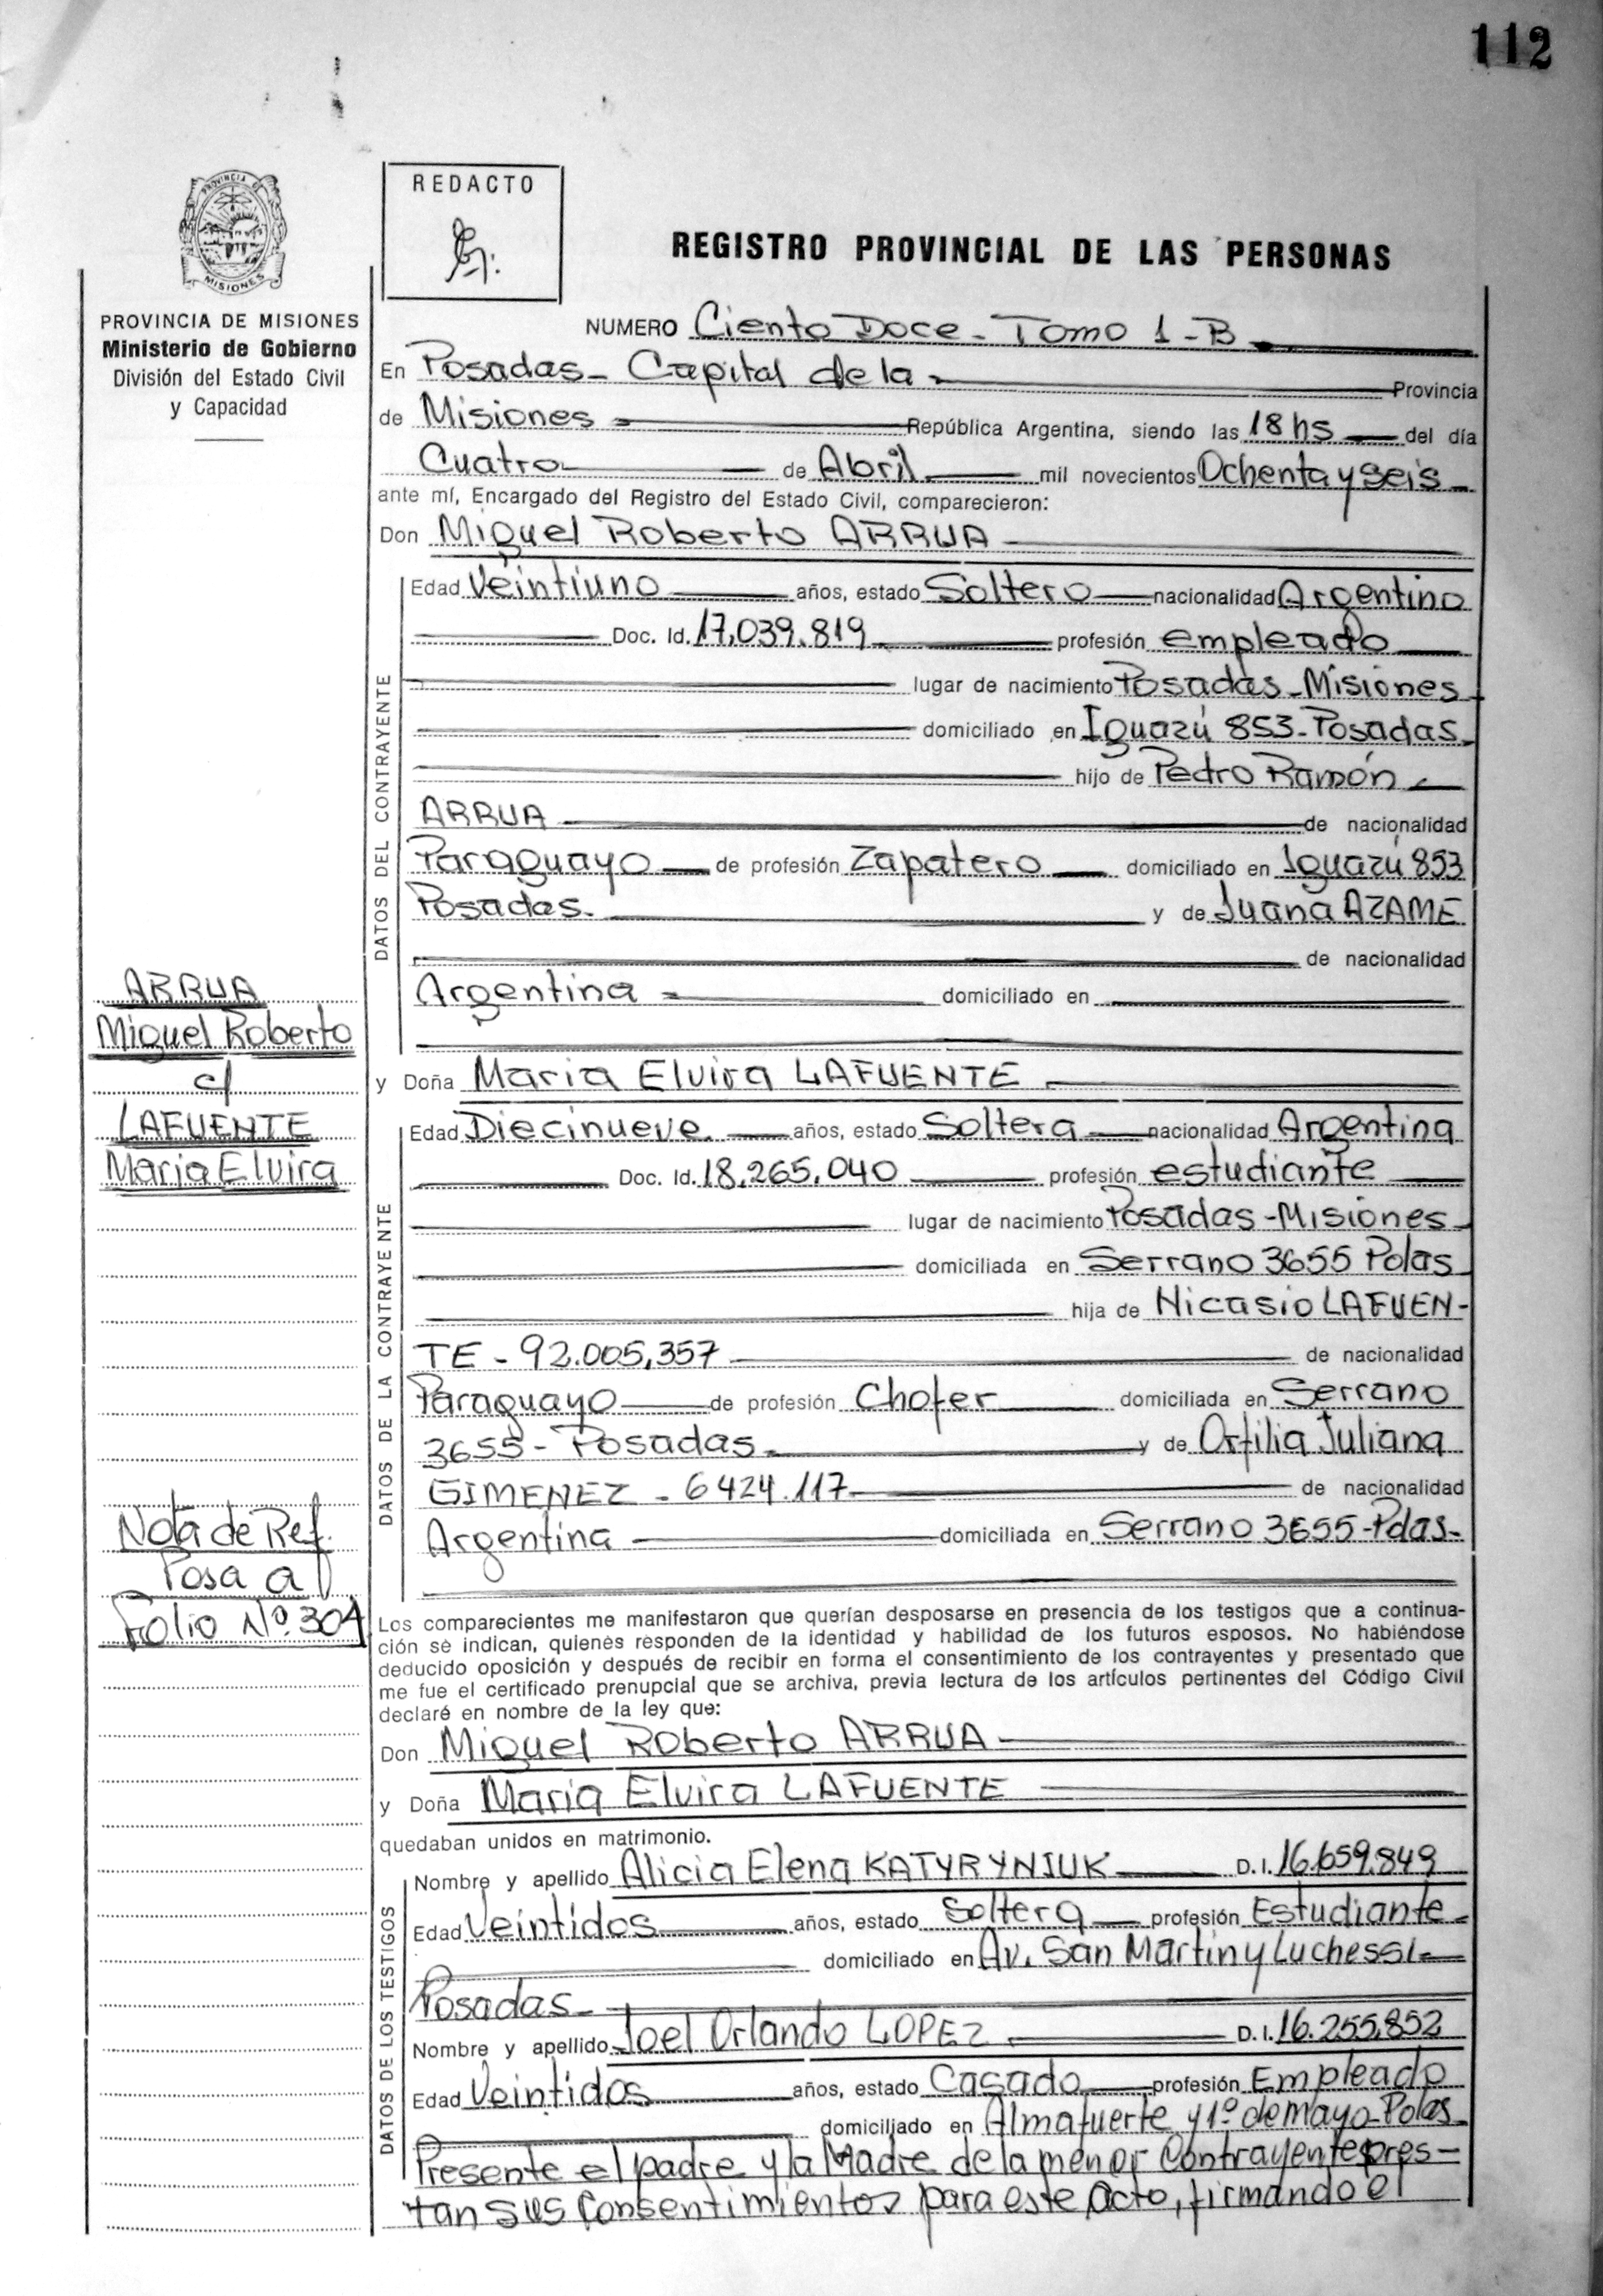 112
PROVINCIA DE
MISIONES
REDACTO
REGISTRO PROVINCIAL DE LAS PERSONAS
PROVINCIA DE MISIONES
Ministerio de Gobierno
División del Estado Civil
y Capacidad
NUMERO Ciento Doce - Tomo 1 - B
En Posadas - Capital de la Provincia
de Misiones República Argentina, siendo las 18 hs del día
Cuatro de Abril mil novecientos Ochenta y Seis
ante mí, Encargado del Registro del Estado Civil, comparecieron:
Don Miguel Roberto ARRUA
DATOS DEL CONTRAYENTE
Edad Veintiuno años, estado Soltero nacionalidad Argentino
Doc. Id. 17.039.819 profesión empleado
lugar de nacimiento Posadas - Misiones
domiciliado en Iguazú 853 - Posadas
hijo de Pedro Ramón
ARRUA de nacionalidad
Paraguayo de profesión Zapatero domiciliado en Iguazú 853
Posadas. y de Juana AZAME
de nacionalidad
Argentina domiciliado en
ARRUA
Miguel Roberto
c/
LAFUENTE
Maria Elvira
y Doña Maria Elvira LAFUENTE
DATOS DE LA CONTRAYENTE
Edad Diecinueve años, estado Soltera nacionalidad Argentina
Doc. Id. 18.265.040 profesión estudiante
lugar de nacimiento Posadas - Misiones
domiciliada en Serrano 3655 Pdas
hija de Nicasio LAFUEN-
TE - 92.005.357 de nacionalidad
Paraguayo de profesión Chofer domiciliada en Serrano
3655 - Posadas y de Orfilia Juliana
GIMENEZ - 6424.117 de nacionalidad
Argentina domiciliada en Serrano 3655 - Pdas -
Nota de Ref.
Pasa a
Folio Nº 304
Los comparecientes me manifestaron que querían desposarse en presencia de los testigos que a continua-
ción se indican, quienes responden de la identidad y habilidad de los futuros esposos. No habiéndose
deducido oposición y después de recibir en forma el consentimiento de los contrayentes y presentado que
me fue el certificado prenupcial que se archiva, previa lectura de los artículos pertinentes del Código Civil
declaré en nombre de la ley que:
Don Miguel Roberto ARRUA
y Doña Maria Elvira LAFUENTE
quedaban unidos en matrimonio.
DATOS DE LOS TESTIGOS
Nombre y apellido Alicia Elena KATYRYNIUK D.I. 16.659.849
Edad Veintidos años, estado Soltera profesión Estudiante
domiciliado en Av. San Martin y Luchessi
Posadas
Nombre y apellido Joel Orlando LOPEZ D.I. 16.255.852
Edad Veintidos años, estado Casado profesión Empleado
domiciliado en Almafuerte y 1º de mayo - Pdas
Presente el padre y la Madre de la menor Contrayente pres-
tan sus Consentimientos para este Acto, firmando el